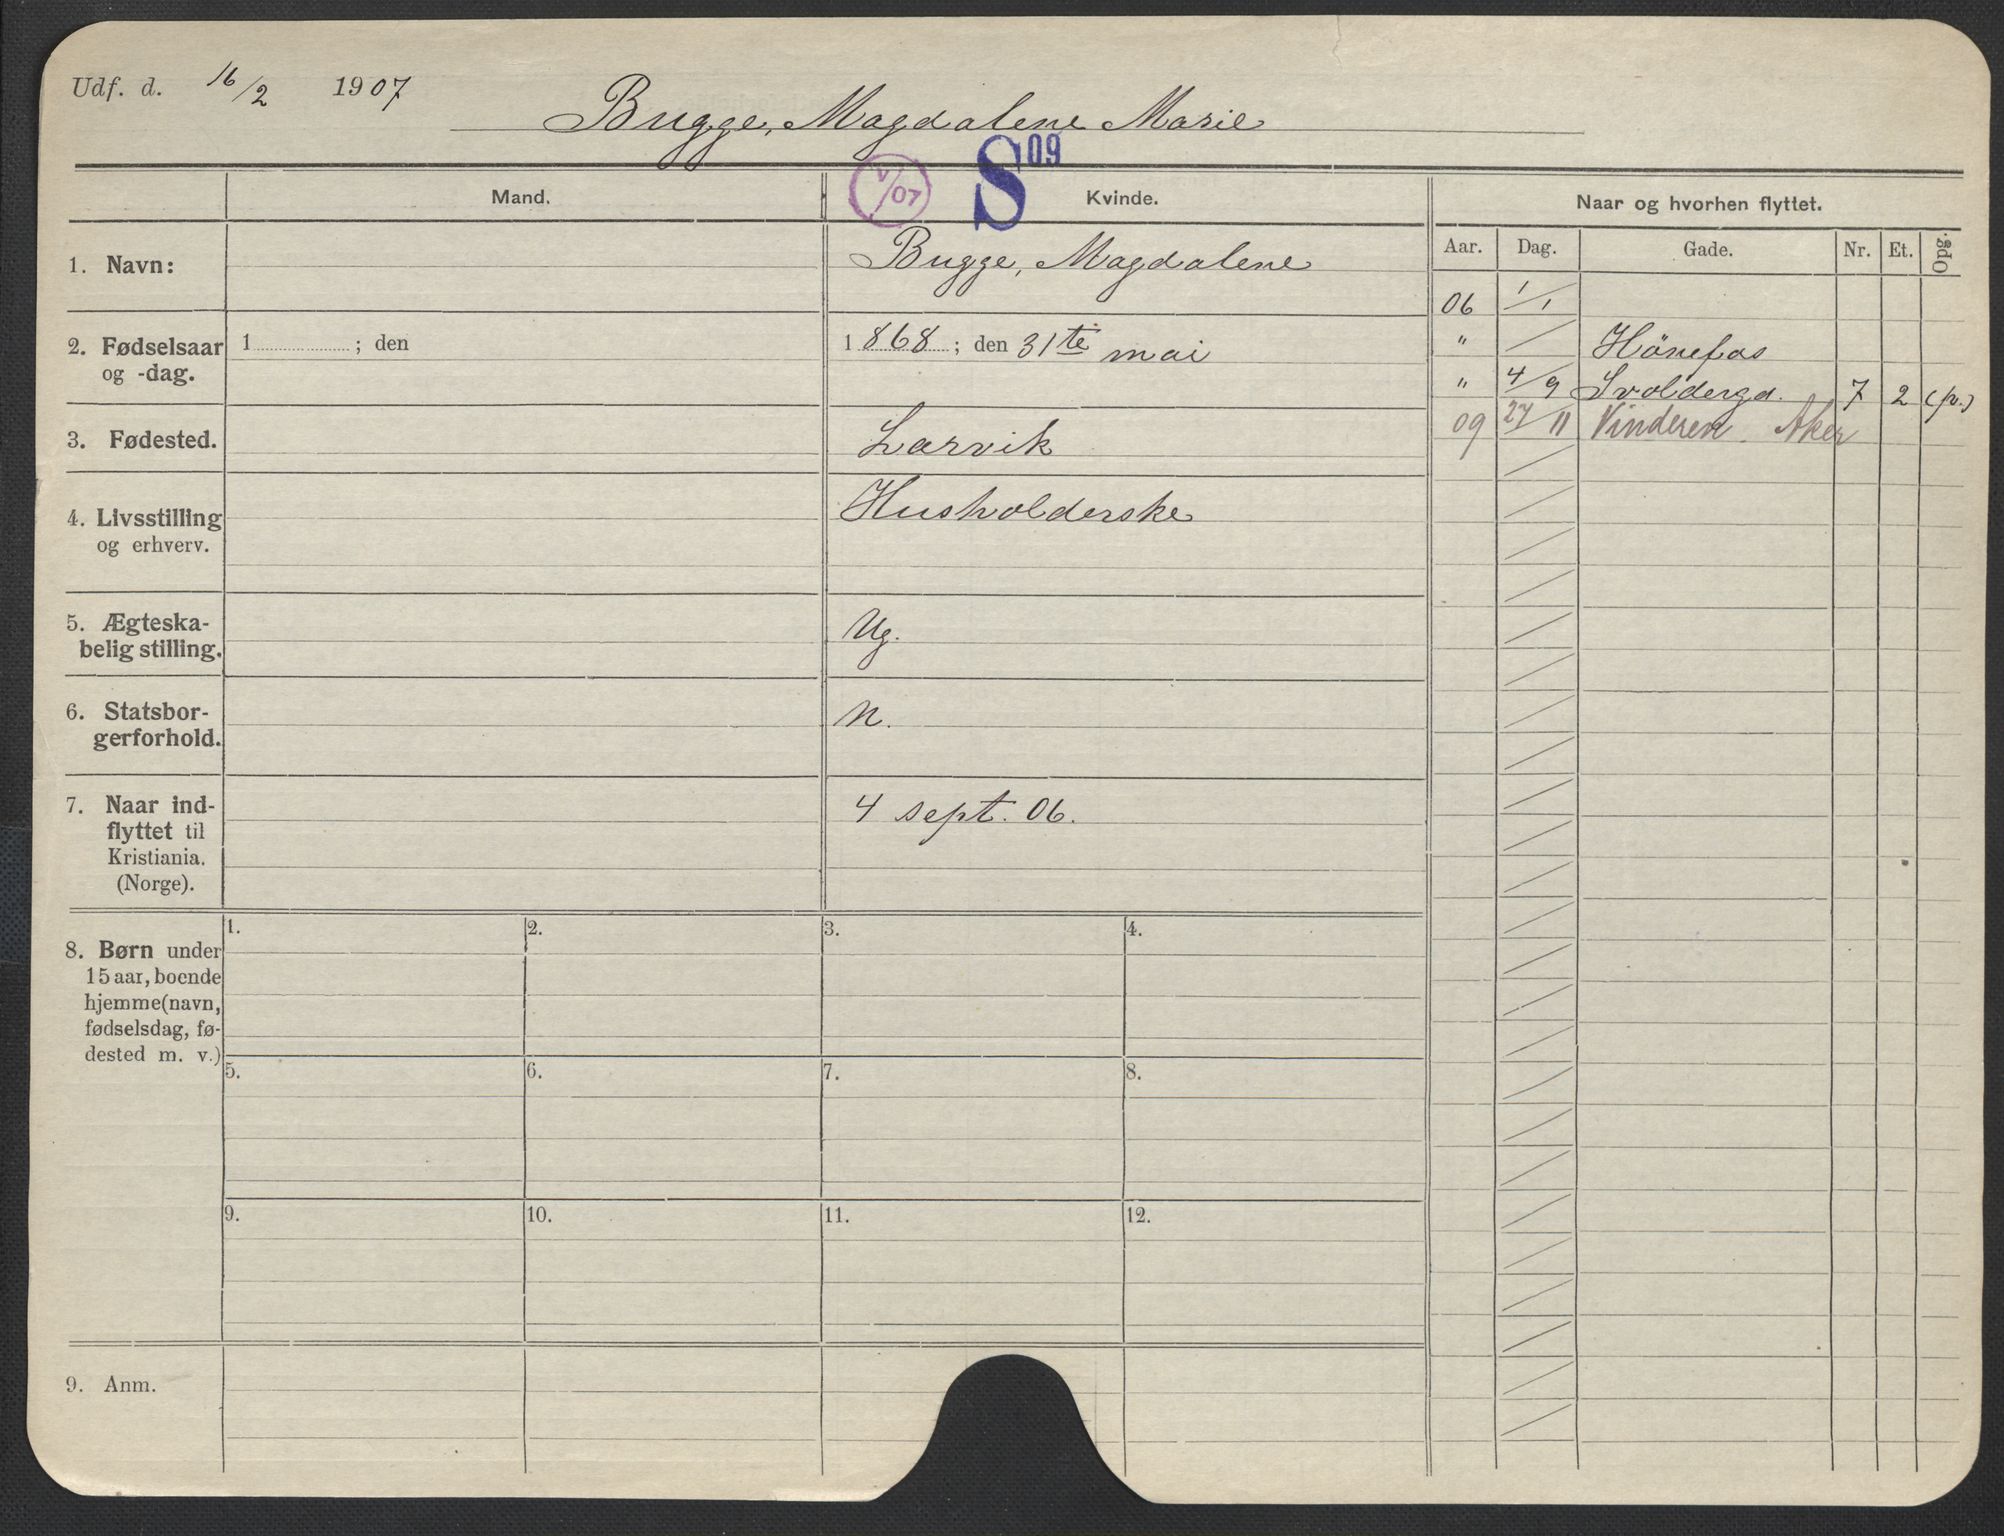 Udf. d. 16/2 1907
Bugge, Magdalene Marie
S 09
/07
Mand.
Kvinde.
Naar og hvorhen flyttet.
Aar. Dag. Gade. Nr. Et. Opg.
1. Navn:
Bugge, Magdalene
06 1/1
2. Fødselsaar
og -dag.
1 ; den
1868; den 31te mai
" Hönefos
" 4/9 Svoldergd. 7 2 (pv.)
09 27/11 Vinderen. Aker
3. Fødested.
Larvik
4. Livsstilling
og erhverv.
Husholderske
5. Ægteska-
belig stilling.
Ug.
6. Statsbor-
gerforhold.
N.
7. Naar ind-
flyttet til
Kristiania.
(Norge).
4 sept. 06.
8. Børn under
15 aar, boende
hjemme (navn,
fødselsdag, fø-
dested m. v.)
1. 2. 3. 4.
5. 6. 7. 8.
9. 10. 11. 12.
9. Anm.